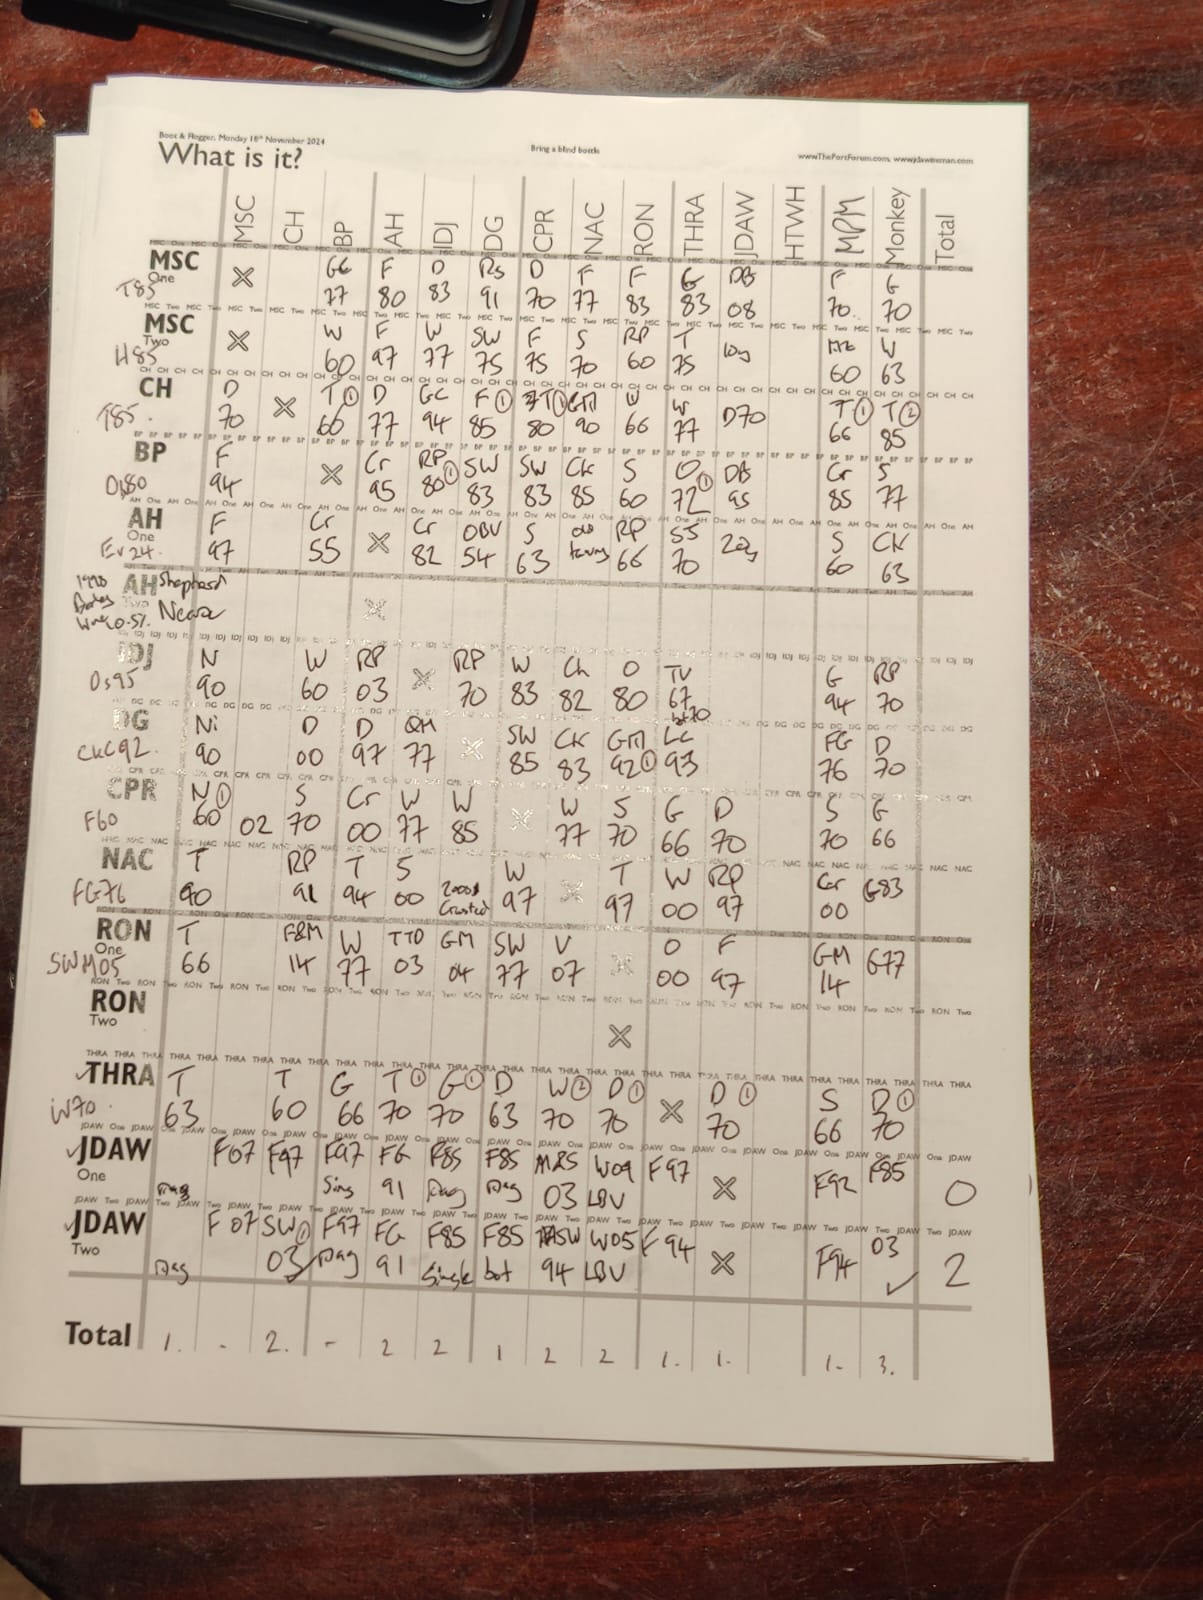 Boot & Flogger, Monday 18th November 2024
Bring a blind bottle
www.ThePortForum.com, www.jdawiseman.com
What is it?
MSC CH BP AH IDJ DG CPR NAC RON THRA JDAW HTWH MPM Monkey Total
MSC GC F D Rs D F F G DB F G
One
T85 77 80 83 91 70 77 83 83 08 70 70
MSC W F W SW F S RP T W
Two
H85 60 97 77 75 75 70 60 75 60 63
CH D T ① D GC F ① T ① GM W W D70 T ① T ②
T85 70 66 77 94 85 80 90 66 77 66 85
BP F Cr RP ① SW SW CK S O ① DB Cr S
80 94 95 80 83 83 85 60 72 95 85 77
AH F Cr Cr OBV S RP SS 20y S CK
One
Ev24 97 55 82 54 63 66 70 60 63
AH Shepherd
Two Neame
IDJ N W RP RP W Ch O TV G RP
Ds95 90 60 03 70 83 82 80 67 94 70
bt70
DG Ni D D QH SW CK GM LC FG D
CKC92 90 00 97 77 85 83 92 ① 93 76 70
CPR N ① S Cr W W W S G D S G
F60 60 02 70 00 77 85 77 70 66 70 70 66
NAC T RP T S W T W RP Gr G83
FG76 90 91 94 00 2000s Crusted 97 97 00 97 00
RON T F&M W TTD GM SW V O F GM G77
One
SWM05 66 14 77 03 04 77 07 00 97 14
RON
Two
THRA T T G T ① G ① D W ② D ① D ① S D ①
W70 63 60 66 70 70 63 70 70 70 66 70
JDAW F07 F97 F97 FG F85 F85 W09 F97 F92 F85
One Sing 91 03 LBV 0
JDAW F07 SW ① F97 FG F85 F85 SW W05 F94 F94 03
Two 03 91 Single bot 94 LBV 2
Total 1. - 2. - 2 2 1 2 2 1. 1. 1- 3.